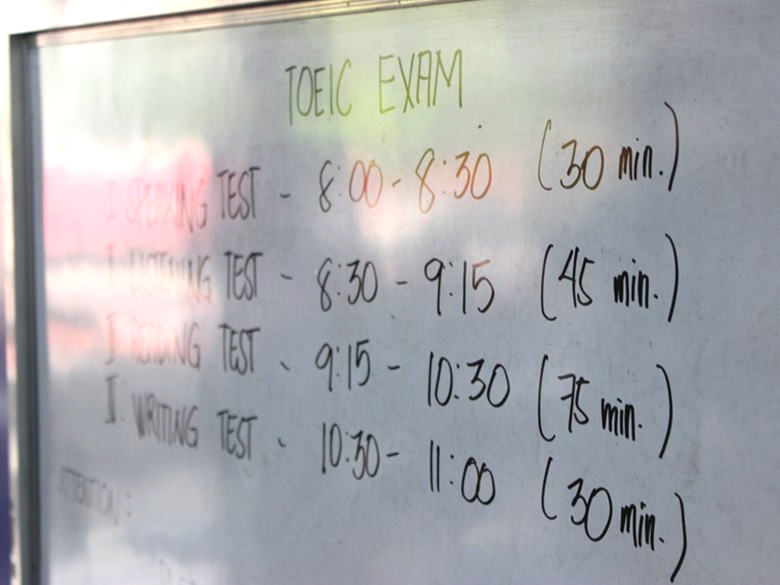 TOEIC EXAM
I SPEAKING TEST - 8:00 - 8:30 (30 min.)
I LISTENING TEST - 8:30 - 9:15 (45 min.)
I READING TEST - 9:15 - 10:30 (75 min.)
II. WRITING TEST - 10:30 - 11:00 (30 min.)
ATTENTION: